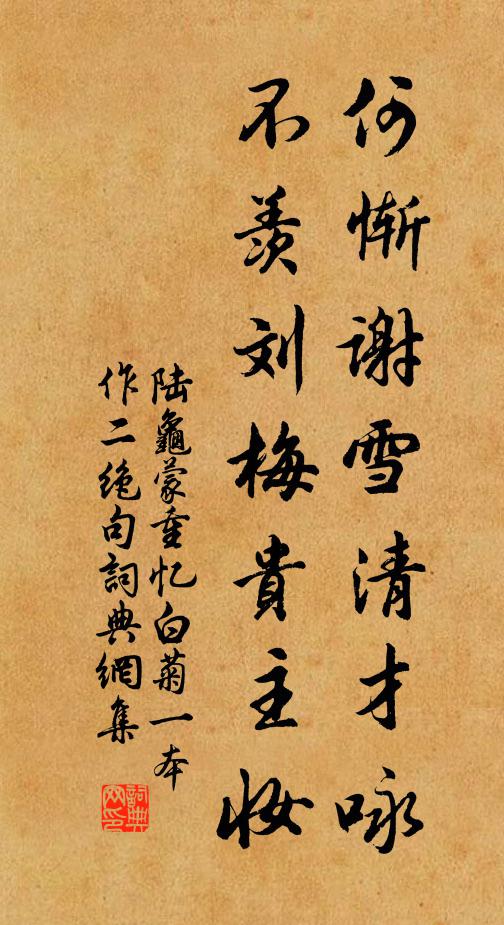 何惭谢雪清才咏
不羡刘梅貴主妝
陆龜蒙重忆白菊一本
作二绝句詞典網集
詞典网印